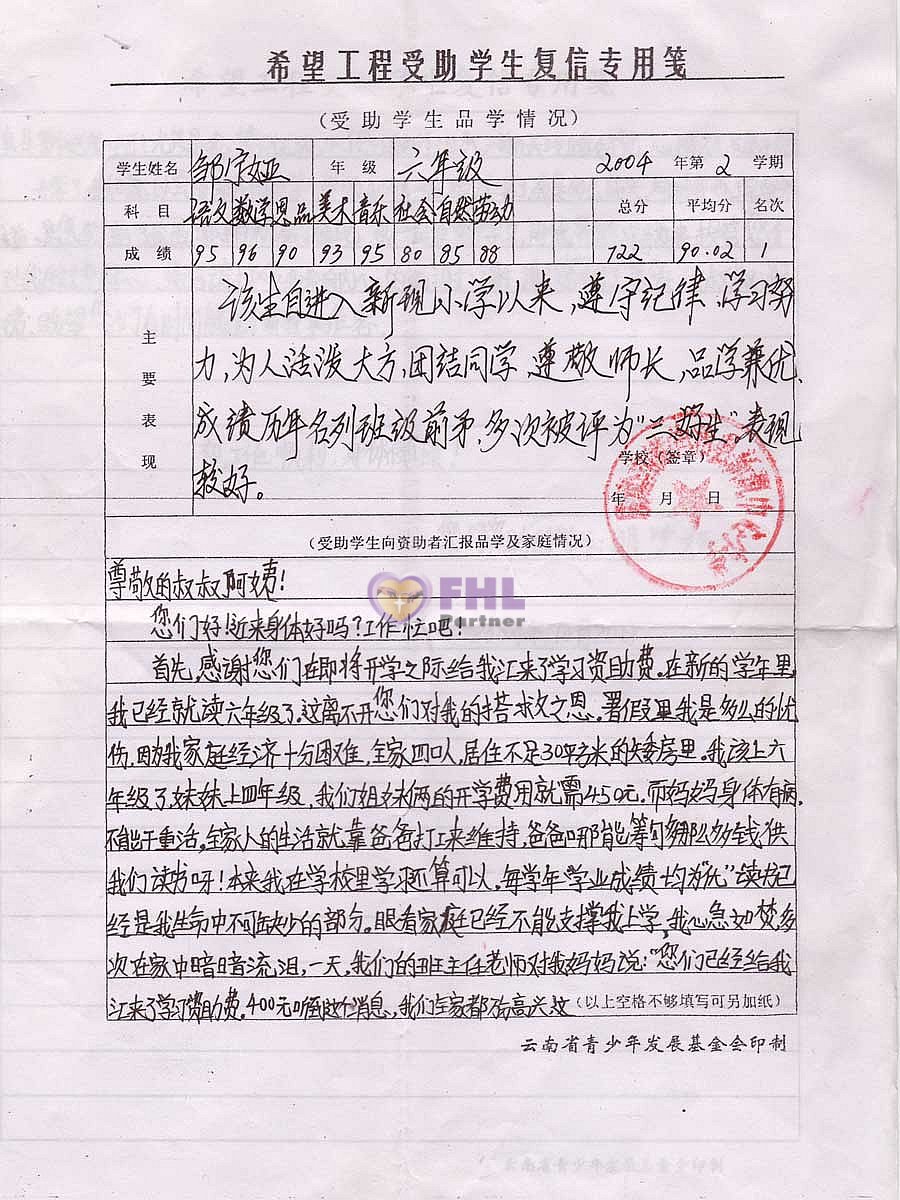 希望工程受助学生复信专用笺
(受助学生品学情况)
学生姓名 邹宇娅 年级 六年级 2004 年第 2 学期
科目 语文 数学 思品 美术 音乐 社会 自然 劳动 总分 平均分 名次
成绩 95 96 90 93 95 80 85 88 722 90.02 1
主要表现
该生自进入新现小学以来,遵守纪律,学习努
力,为人活泼大方,团结同学,尊敬师长,品学兼优,
成绩历年名列班级前矛,多次被评为“三好生”。表现
较好。
学校(签章)
年 月 日
(受助学生向资助者汇报品学及家庭情况)
尊敬的叔叔阿姨!
FHL
Partner
您们好!近来身体好吗?工作忙吧!
首先,感谢您们在即将开学之际给我汇来了学习资助费。在新的学年里,
我已经就读六年级了,这离不开您们对我的搭救之恩。署假里我是多么的忧
伤,因为我家庭经济十分困难,全家四口人,居住不足30平方米的矮房里。我该上六
年级了,妹妹上四年级,我们姐妹俩的开学费用就需450元。而妈妈身体有病,
不能干重活,全家人的生活就靠爸爸打工来维持,爸爸哪能筹可多那么多钱供
我们读书呀!本来我在学校里学习还算可以,每学年学业成绩均为“优”读书已
经是我生命中不可缺少的部分。眼看家庭已经不能支撑我上学,我心急如焚,多
次在家中暗暗流泪,一天,我们的班主任老师对我妈妈说:“您们已经给我
汇来了学习资助费,400元听到这个消息,我们全家都为高兴
(以上空格不够填写可另加纸)
云南省青少年发展基金会印制